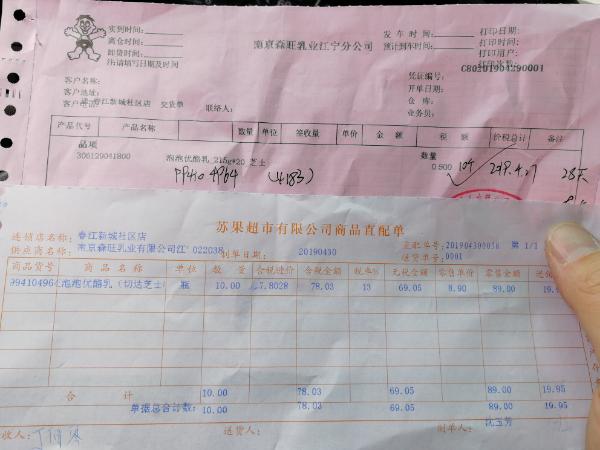 实到时间：
离仓时间：
卸货时间：
注：请填写日期及时间
南京森旺乳业江宁分公司
发车时间：
预计到车时间：
打印日期：
打印时间：
打印用户：
打印次数：
C80201904290001
客户名称：
客户地址：
客户电话：
春江新城社区店 交货单
联络人：
凭证编号：
开单日期：
仓库：
业务员：
产品代号 产品名称 数量 单位 签收量 单价 金额 税额 价税总计 备注
品项 数量
306129041800 泡泡优酪乳 215g*20 芝士 0.500
苏果超市有限公司商品直配单
连锁店名称：春江新城社区店
供应商名称：南京森旺乳业有限公司江 022038 制单日期：20190430
直配单号：201904300038 第 1/1
送货单号：0001
商品货号 商品名称 单位 数量 含税进价 含税金额 税率% 无税金额 零售单价 零售金额
泡泡优酪乳（切达芝士 瓶 10.00 7.8028 78.03 13 69.05 8.90 89.00 19.95
合计 10.00 78.03 69.05 89.00 19.95
单据总合计数：10.00 78.03 69.05 89.00 19.95
收人：
送货人：
制单人：沈玉芳